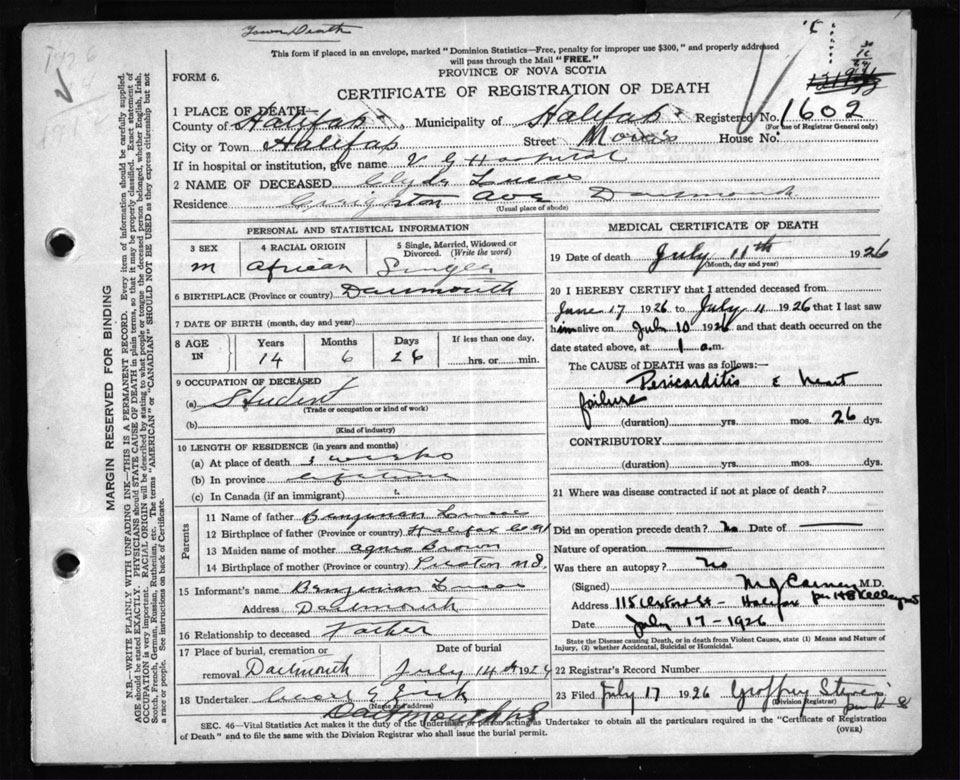 Town Death
This form if placed in an envelope, marked "Dominion Statistics—Free, penalty for improper use $300," and properly addressed
will pass through the Mail "FREE."
FORM 6.
PROVINCE OF NOVA SCOTIA
CERTIFICATE OF REGISTRATION OF DEATH
1 PLACE OF DEATH—
County of Halifax, Municipality of Halifax Registered No. 1602
(For use of Registrar General only)
City or Town Halifax Street Morris House No.
If in hospital or institution, give name V G Hospital
2 NAME OF DECEASED Clyde Lucas
Residence Crighton Ave Dartmouth
(Usual place of abode)
PERSONAL AND STATISTICAL INFORMATION
3 SEX 4 RACIAL ORIGIN 5 Single, Married, Widowed or Divorced. (Write the word)
M African Single
6 BIRTHPLACE (Province or country) Dartmouth
7 DATE OF BIRTH (month, day and year)
8 AGE IN Years Months Days If less than one day,
14 6 26 hrs. or min.
9 OCCUPATION OF DECEASED
(a) Student
(Trade or occupation or kind of work)
(b)
(Kind of industry)
10 LENGTH OF RESIDENCE (in years and months)
(a) At place of death 3 weeks
(b) In province life time
(c) In Canada (if an immigrant)
Parents
11 Name of father Benjaman Lucas
12 Birthplace of father (Province or country) Halifax Co
13 Maiden name of mother Agnes Brown
14 Birthplace of mother (Province or country) Preston N S
15 Informant's name Benjaman Lucas
Address Dartmouth
16 Relationship to deceased Father
17 Place of burial, cremation or removal Date of burial
Dartmouth July 14th 192
18 Undertaker
(Name and address)
Dartmouth N S
MEDICAL CERTIFICATE OF DEATH
19 Date of death July 11th 1926
(Month, day and year)
20 I HEREBY CERTIFY that I attended deceased from
June 17 1926 to July 11 1926 that I last saw
him alive on July 10 1926 and that death occurred on the
date stated above, at 1 a.m.
The CAUSE of DEATH was as follows:—
Pericarditis & heart
failure
(duration) yrs. mos. 26 dys.
CONTRIBUTORY
(duration) yrs. mos. dys.
21 Where was disease contracted if not at place of death?
Did an operation precede death? No Date of
Nature of operation
Was there an autopsy? No
(Signed) M.D.
Address 115 Halifax
Date July 17-1926
State the Disease causing Death, or in death from Violent Causes, state (1) Means and Nature of
Injury, (2) whether Accidental, Suicidal or Homicidal.
22 Registrar's Record Number
23 Filed July 17 1926 Geoffrey
(Division Registrar)
SEC. 46—Vital Statistics Act makes it the duty of the Undertaker or person acting as Undertaker to obtain all the particulars required in the "Certificate of Registration
of Death" and to file the same with the Division Registrar who shall issue the burial permit.
(OVER)
MARGIN RESERVED FOR BINDING
N.B.—WRITE PLAINLY WITH UNFADING INK—THIS IS A PERMANENT RECORD. Every item of information should be carefully supplied.
AGE should be stated EXACTLY. PHYSICIANS should STATE CAUSE OF DEATH in plain terms, so that it may be properly classified. Exact statement of
OCCUPATION is very important. RACIAL ORIGIN will be described by stating to what people or tongue the deceased person belonged, whether English, Irish,
Scotch, French, German, Russian, Ruthenian, etc. The terms "AMERICAN" or "CANADIAN" SHOULD NOT BE USED as they express citizenship but not
a race or people. See instructions on back of Certificate.